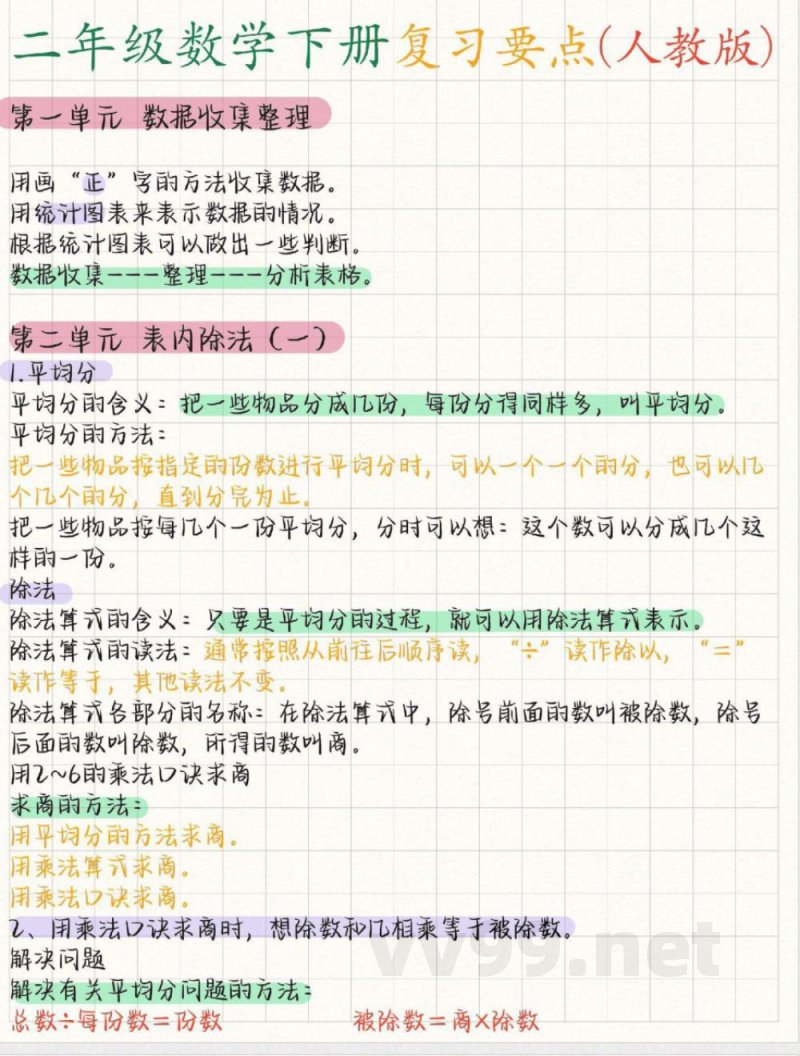 二年级数学下册复习要点(人教版)
第一单元 数据收集整理
用画“正”字的方法收集数据。
用统计图表来表示数据的情况。
根据统计图表可以做出一些判断。
数据收集---整理---分析表格。
第二单元 表内除法(一)
1.平均分
平均分的含义：把一些物品分成几份，每份分得同样多，叫平均分。
平均分的方法：
把一些物品按指定的份数进行平均分时，可以一个一个的分，也可以几
个几个的分，直到分完为止。
把一些物品按每几个一份平均分，分时可以想：这个数可以分成几个这
样的一份。
除法
除法算式的含义：只要是平均分的过程，就可以用除法算式表示。
除法算式的读法：通常按照从前往后顺序读，“÷”读作除以，“=”
读作等于，其他读法不变。
除法算式各部分的名称：在除法算式中，除号前面的数叫被除数，除号
后面的数叫除数，所得的数叫商。
用2~6的乘法口诀求商
求商的方法：
用平均分的方法求商。
用乘法算式求商。
用乘法口诀求商。
2、用乘法口诀求商时，想除数和几相乘等于被除数。
解决问题
解决有关平均分问题的方法：
总数÷每份数=份数 被除数=商×除数
vv99.net